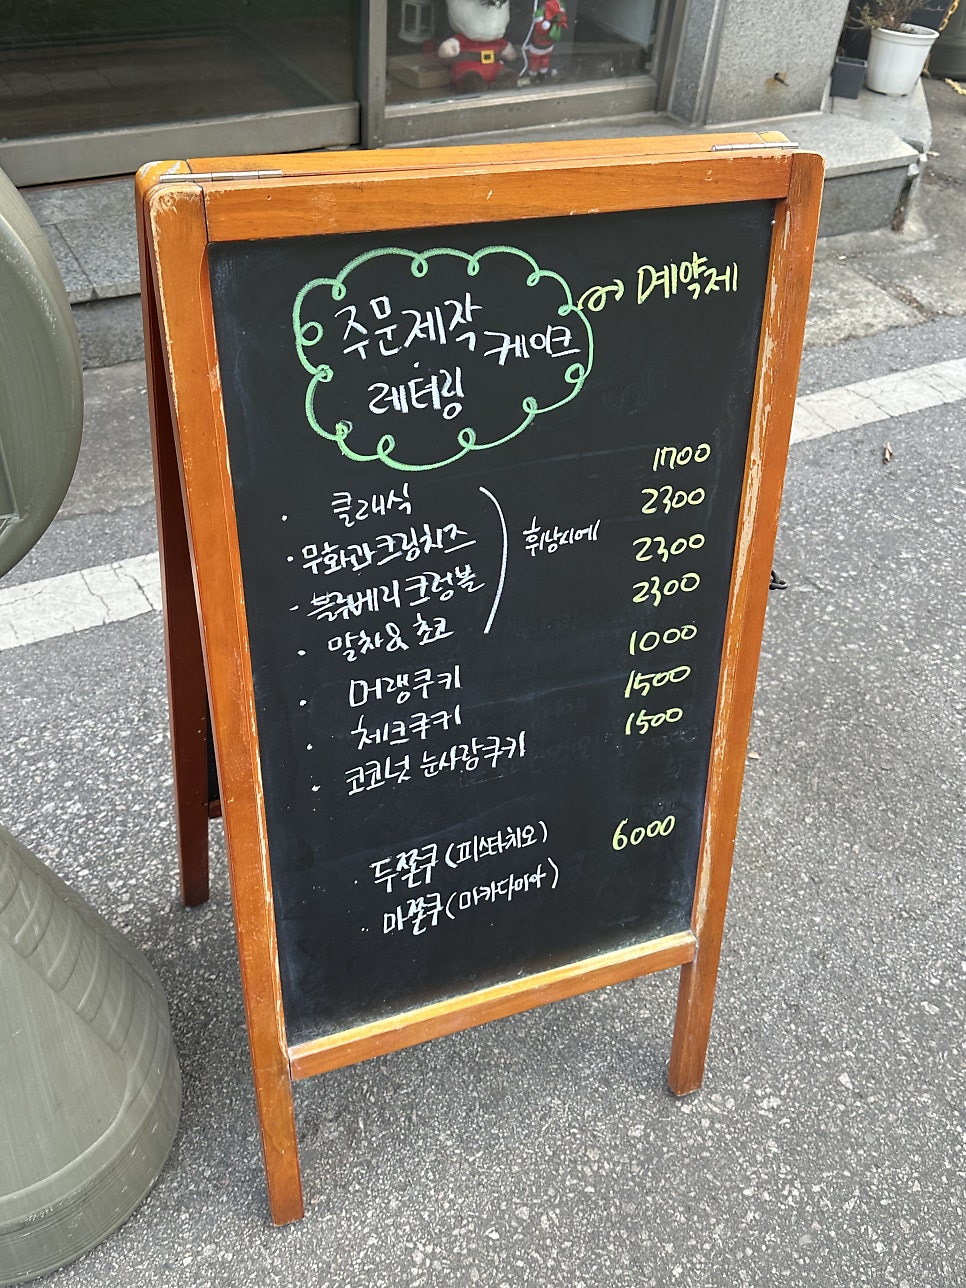 주문제작 케이크 → 예약제
레터링
· 클래식 1700
· 무화과크림치즈 휘낭시에 2300
· 블루베리크럼블 2300
· 말차&초코 2300
· 머랭쿠키 1000
· 체크쿠키 1500
· 코코넛 눈사람쿠키 1500
· 두쫀쿠(피스타치오) 6000
· 마쫀쿠(마카다미아)